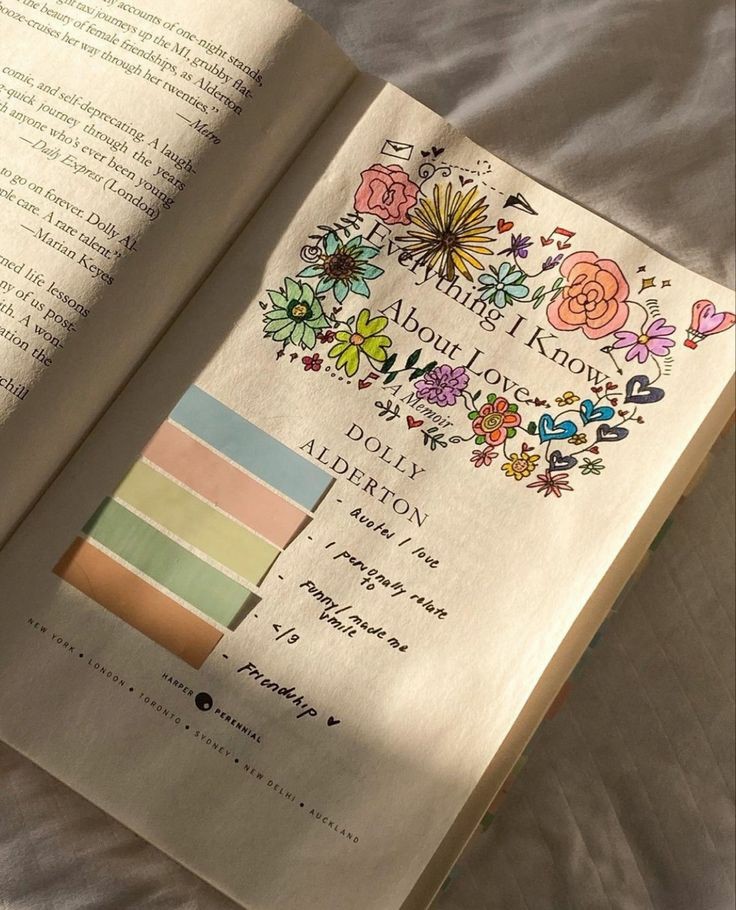 my accounts of one-night stands,
taxi journeys up the M1, grubby flat-
the beauty of female friendships, as Alderton
booze-cruises her way through her twenties.”
—Metro
comic, and self-deprecating. A laugh-
-quick journey through the years
anyone who’s ever been young
—Daily Express (London)
to go on forever. Dolly Al-
ple care. A rare talent.”
—Marian Keyes
ned life lessons
ny of us post-
th. A won-
ation the
chill
Everything I Know
About Love
A Memoir
DOLLY
ALDERTON
- Quotes I love
- I personally relate
to
- Funny/made me
smile
- </3
- Friendship ♥
HARPER PERENNIAL
NEW YORK • LONDON • TORONTO • SYDNEY • NEW DELHI • AUCKLAND